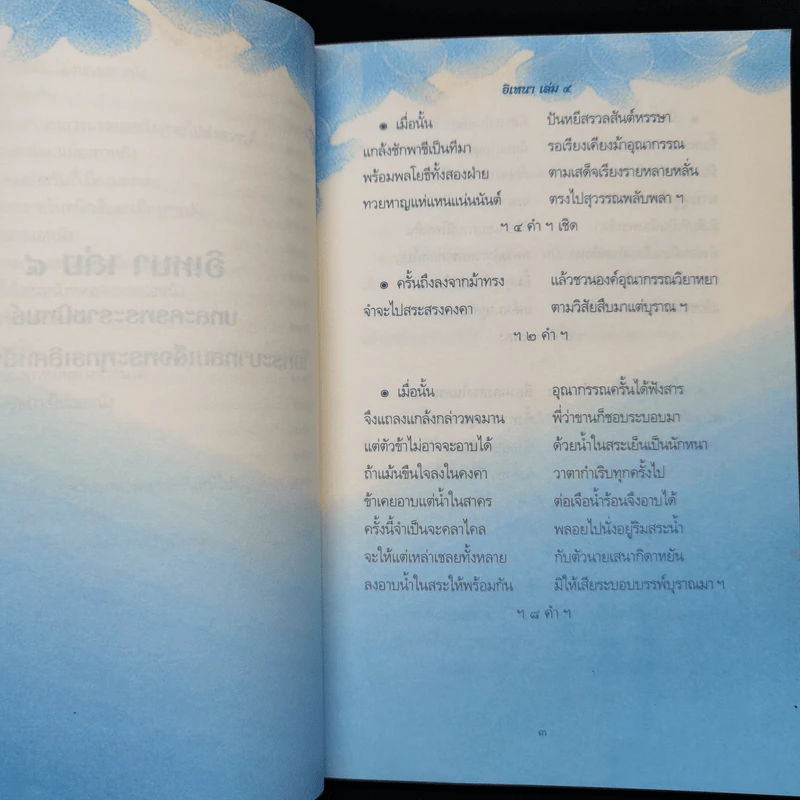 อิเหนา เล่ม ๔
๏ เมื่อนั้น ปันหยีสรวลสันต์หรรษา
แกล้งชักพาชีเป็นทีมา รอเรียงเคียงม้าอุณากรรณ
พร้อมพลโยธีทั้งสองฝ่าย ตามเสด็จเรียงรายหลายหลั่น
ทวยหาญแห่แหนแน่นนันต์ ตรงไปสุวรรณพลับพลา ฯ
ฯ ๔ คำ ฯ เชิด
๏ ครั้นถึงลงจากม้าทรง แล้วชวนองค์อุณากรรณวิยาหยา
จำจะไปสระสรงคงคา ตามวิสัยสืบมาแต่บุราณ ฯ
ฯ ๒ คำ ฯ
๏ เมื่อนั้น อุณากรรณครั้นได้ฟังสาร
จึงแถลงแกล้งกล่าวพจมาน พี่ว่าขานก็ชอบระบอบมา
แต่ตัวข้าไม่อาจจะอาบได้ ด้วยน้ำในสระเย็นเป็นนักหนา
ถ้าแม้นขืนใจลงในคงคา วาตากำเริบทุกครั้งไป
ข้าเคยอาบแต่น้ำในสาคร ต่อเจือน้ำร้อนจึงอาบได้
ครั้งนี้จำเป็นจะคลาไคล พลอยไปนั่งอยู่ริมสระน้ำ
จะให้แต่เหล่าเชลยทั้งหลาย กับตัวนายเสนากิดาหยัน
ลงอาบน้ำในสระให้พร้อมกัน มิให้เสียระบอบบรรพ์บุราณมา ฯ
ฯ ๘ คำ ฯ
๓
อิเหนา เล่ม ๔
บทละครพระราชนิพนธ์